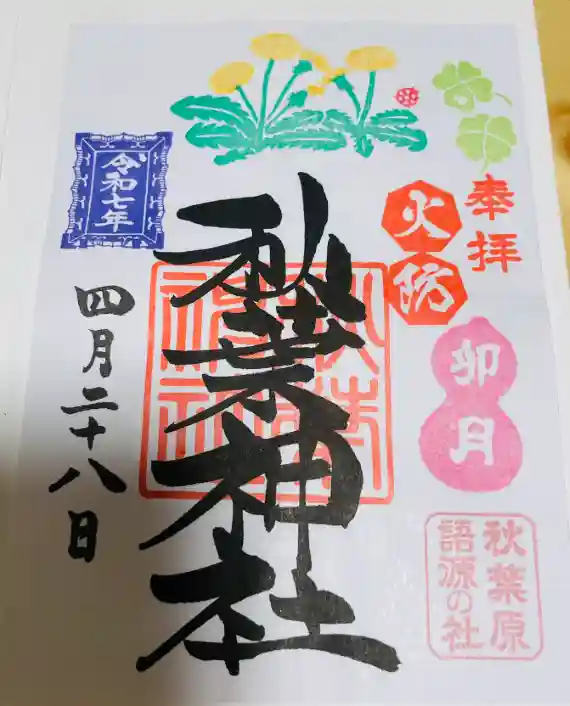 奉拝
火防
卯月
秋葉原
語源の社
秋葉神社
秋葉神社
令和七年
四月二十八日